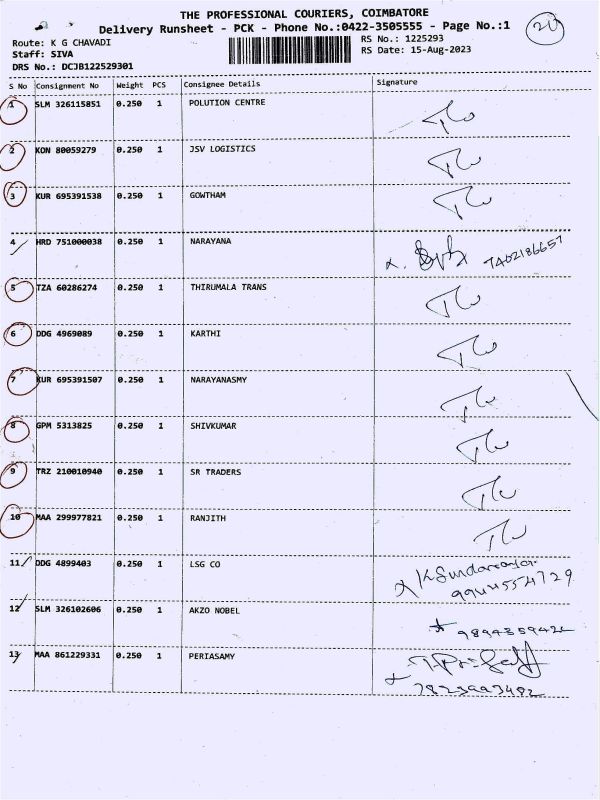 THE PROFESSIONAL COURIERS, COIMBATORE
Delivery Runsheet - PCK - Phone No.:0422-3505555 - Page No.:1
Route: K G CHAVADI
RS No.: 1225293
Staff: SIVA
RS Date: 15-Aug-2023
DRS No.: DCJB122529301
S No Consignment No Weight PCS Consignee Details Signature
1 SLM 326115851 0.250 1 POLUTION CENTRE
2 KON 80059279 0.250 1 JSV LOGISTICS
3 KUR 695391538 0.250 1 GOWTHAM
4 HRD 751000038 0.250 1 NARAYANA
7402186657
5 TZA 60286274 0.250 1 THIRUMALA TRANS
6 DDG 4969089 0.250 1 KARTHI
7 KUR 695391507 0.250 1 NARAYANASMY
8 GPM 5313825 0.250 1 SHIVKUMAR
9 TRZ 210010940 0.250 1 SR TRADERS
10 MAA 299977821 0.250 1 RANJITH
11 DDG 4899403 0.250 1 LSG CO
12 SLM 326102606 0.250 1 AKZO NOBEL
13 MAA 861229331 0.250 1 PERIASAMY